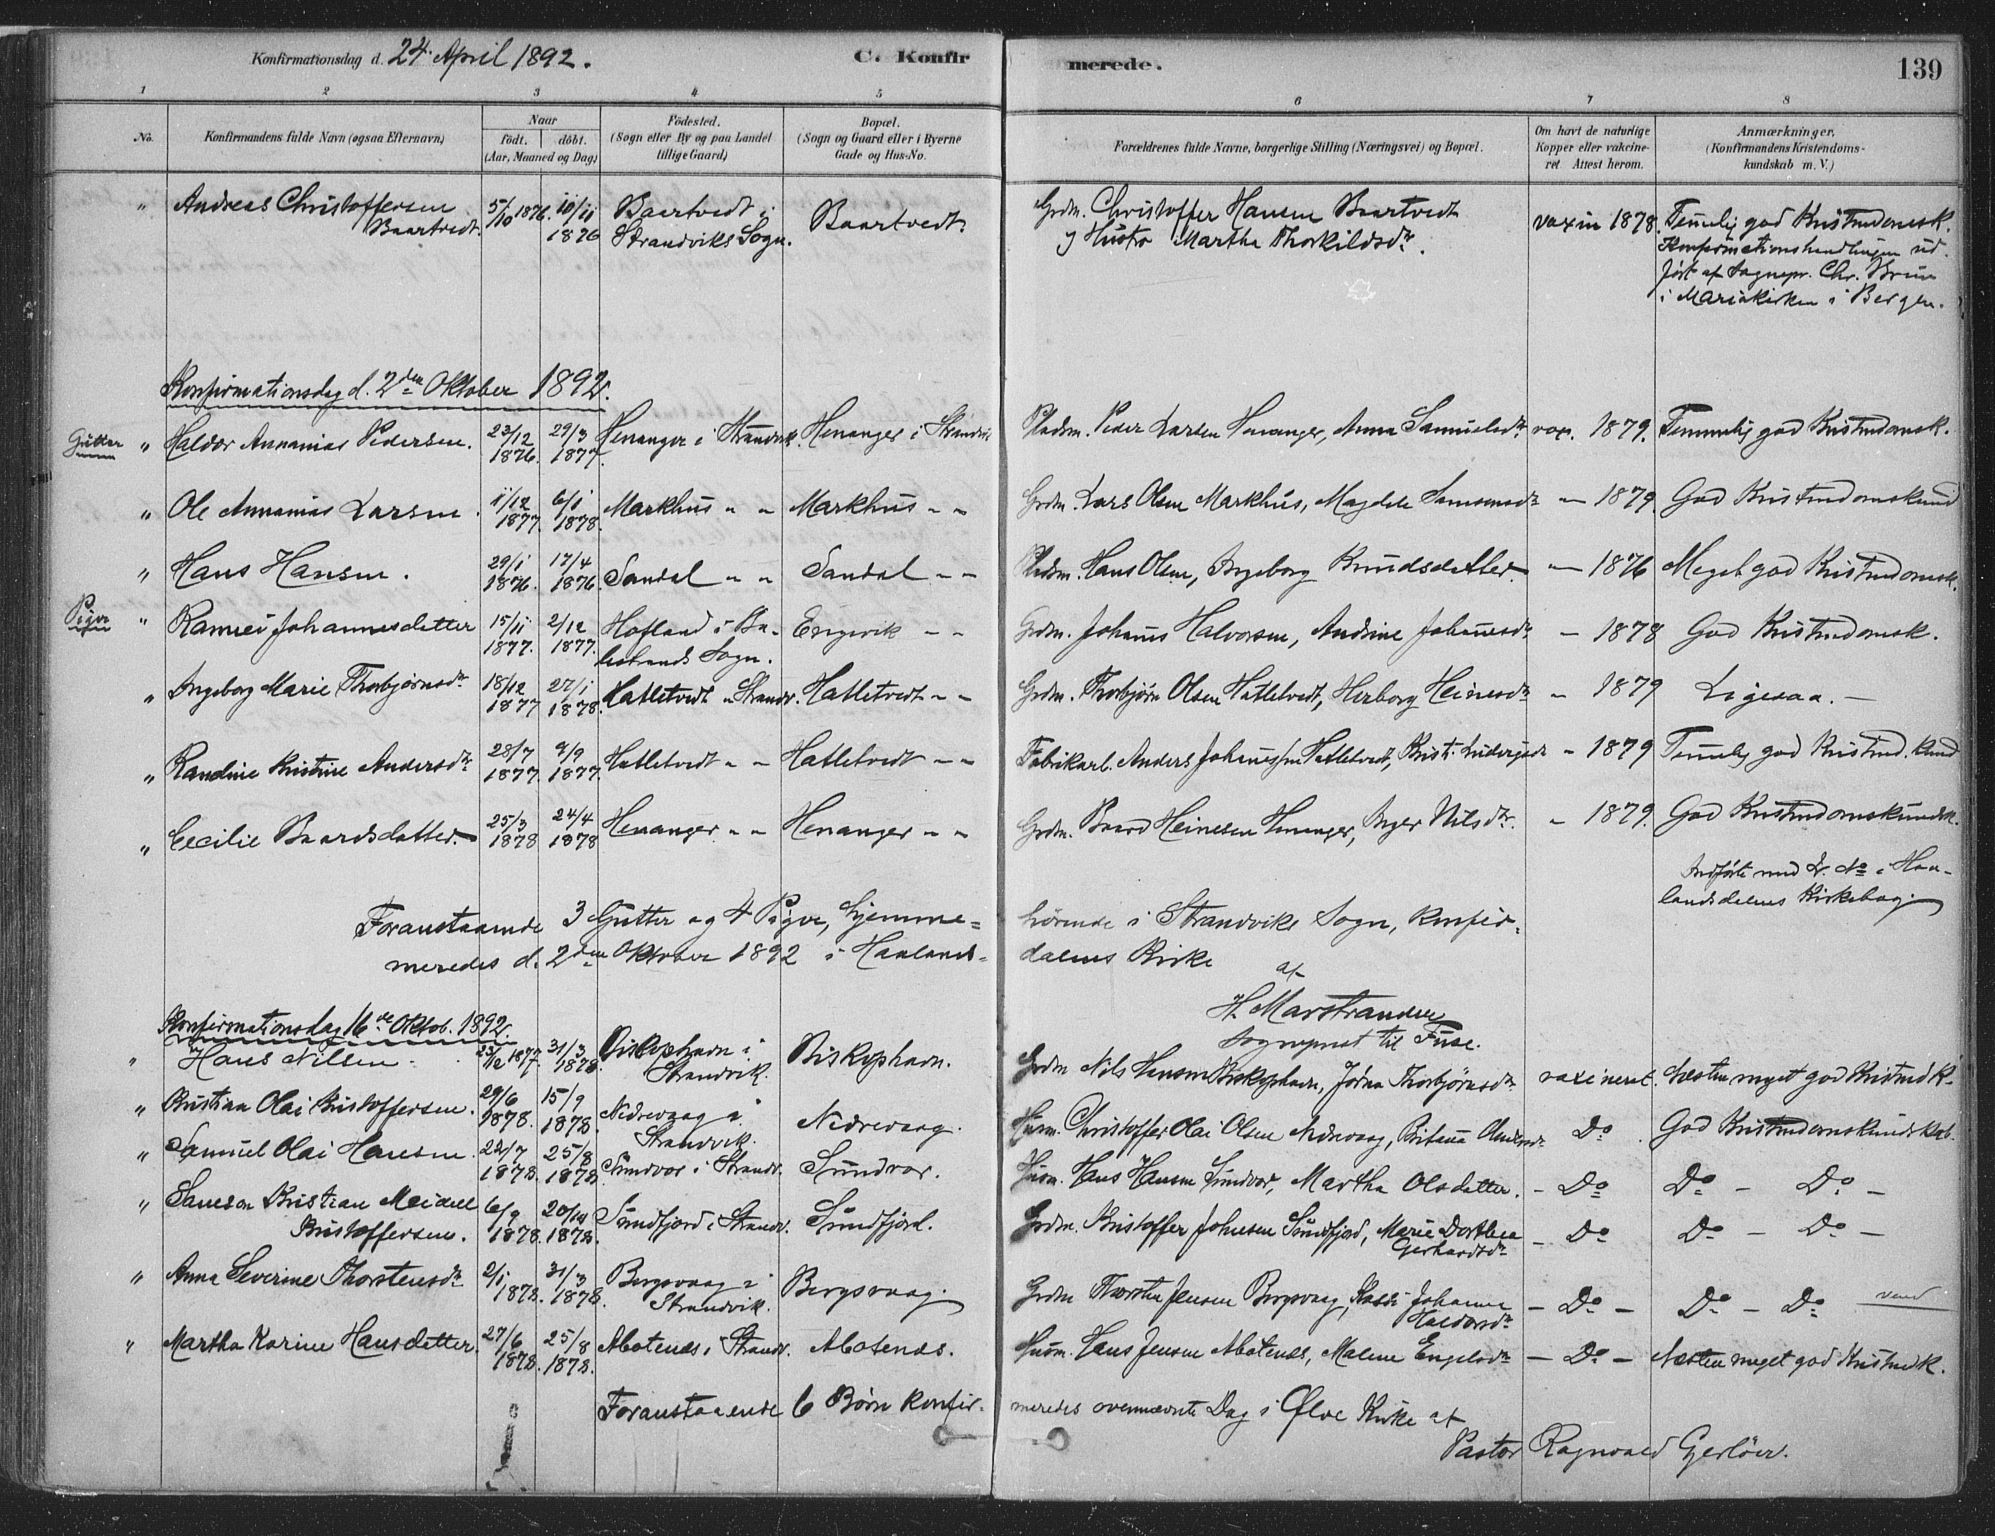 Konfirmationsdag d. 24. April 1892.
C. Konfirmerede.
139
1 2 3 4 5 6 7 8
No.
Konfirmandens fulde Navn (ogsaa Efternavn)
Naar
födt. döbt.
(Aar, Maaned og Dag)
Födested.
(Sogn eller By og paa Landet
tillige Gaard)
Bopæl.
(Sogn og Gaard eller i Byerne
Gade og Hus-No.
Forældrenes fulde Navne, borgerlige Stilling (Næringsvei) og Bopæl.
Om havt de naturlige
Kopper eller vakcine-
ret Attest herom.
Anmærkninger.
(Konfirmandens Kristendoms-
kundskab m. V.)
" Andreas Christoffersen Baartvedt. 5/10 1876. 10/11 1876 Baartvedt i Strandviks Sogn. Baartvedt. Grdm. Christoffer Hansen Baartvedt
og Hustro Martha Thorkildsdr. vaxin 1878. Temmelig god Kristendomsk.
Konfirmationshandlingen ud-
ført af Sognepr. Chr. Bruun
i Mariakirken i Bergen.
Konfirmationsdag d. 2den Oktober 1892.
Gutter " Haldor Annanias Pedersen. 23/12 1876. 29/3 1877. Henanger i Strandvik. Henanger i Strandvik Pladsm. Peder Larsen Henanger, Anna Samuelsdr. vax. 1879. Temmelig god Kristendomsk.
" Ole Annanias Larsen. 11/12 1877. 6/1 1878. Markhus " " Markhus " " Grdm. Lars Olsen Markhus, Magdele Samsonsdr. — 1879. God Kristendomskund
" Hans Hansen. 29/1 1876. 17/4 1876. Sandal " " Sandal " " Pladsm. Hans Olsen, Ingeborg Knudsdatter. — 1876 Meget god Kristendomsk.
Piger " Ramiei Johannesdatter 15/11 1877. 2/12 1877. Hofland i Ba-
lestrands Sogn. Engevik " " Grdm. Johannes Halvorsen, Andrine Johannesdr. — 1878 God Kristendomsk.
" Ingeborg Marie Thorbjørnsdr. 18/12 1877 27/1 1878. Hatletvedt " Strandv. Hatletvedt " " Grdm. Thorbjørn Olsen Hatletvedt, Herborg Heinesdr. — 1879 Ligesaa. —
" Randine Kristine Andersdr. 28/7 1877. 9/9 1877. Hatletvedt " " Hatletvedt " " Fabrikarb. Anders Johannessen Hatletvedt, Kristi — 1879 Temmelig god Kristend. kund
" Cecilie Baardsdatter. 25/3 1878 24/4 1878 Henanger " " Henanger " " Grdm. Baard Heinesen Henanger, Inger Nilsdr. — 1879. God Kristendomskundsk.
Indførte med L. No i Haa-
landsdalens Kirkebog.
Foranstaaende 3 Gutter og 4 Piger, hjemme-
hørende i Strandviks Sogn, konfir-
meredes d. 2den Oktober 1892 i Haalands-
dalens Kirke
af
H. Marstrander
Sogneprest til Fuse.
Konfirmationsdag 16de Oktob. 1892.
" Hans Nilsen. 23/12 1877. 31/3 1878. Biskophavn i Strandvik. Biskophavn. Grdm Nils Hansen Biskophavn, Jørna Thorbjørnsdr. vaxineret. Næsten meget god Kristend K.
" Kristian Olai Kristoffersen. 29/6 1878. 15/9 1878. Nedrevaag i Strandvik. Nedrevaag. Husm. Christoffer Olai Olsen Nedrevaag, Do God Kristendomskundskab.
" Samuel Olai Hansen. 22/7 1878. 25/8 1878. Sundvor i Strandv. Sundvor. Husm. Hans Hansen Sundvor, Martha Olsdatter. — Do Do — Do —
" Samson Kristian Meidell Kristoffersen. 6/9 1878. 20/10 1878. Sundfjord i Strandv. Sundfjord. Grdm. Kristoffer Johnsen Sundfjord, Marie Dorthea Gerhardsdr. — Do Do — Do —
" Anna Severine Thorstensdr. 2/1 1878. 31/3 1878. Bergsvaag i Strandvik. Bergsvaag. Grdm Thorsten Jensen Bergsvaag, Johanne Haldorsdr. — Do — Do — Do vend
" Martha Karine Hansdatter. 27/6 1878. 25/8 1878. Abotenæs i Strandv. Abotenæs. Husm. Hans Jensen Abotenæs, Malene Engelsdr. — Do — Næsten meget god Kristendk.
Foranstaaende 6 Børn konfir-
meredes ovennævnte Dag i Ølve Kirke af
Pastor Ragnvald Gjerløw.